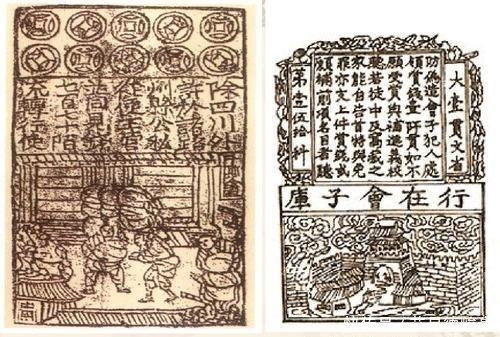 除四川外
許於諸路
州縣公私
從便主管
並同見錢
七百七十陌
流轉行使
大壹貫文省
偽造會子犯人處
賞錢壹阡貫如不
願受賞與補進義校
若徒中及窩之
家能自告首特與免
罪亦支上件賞錢或
願補前項名目者聽
第壹伍拾料
行在會子庫